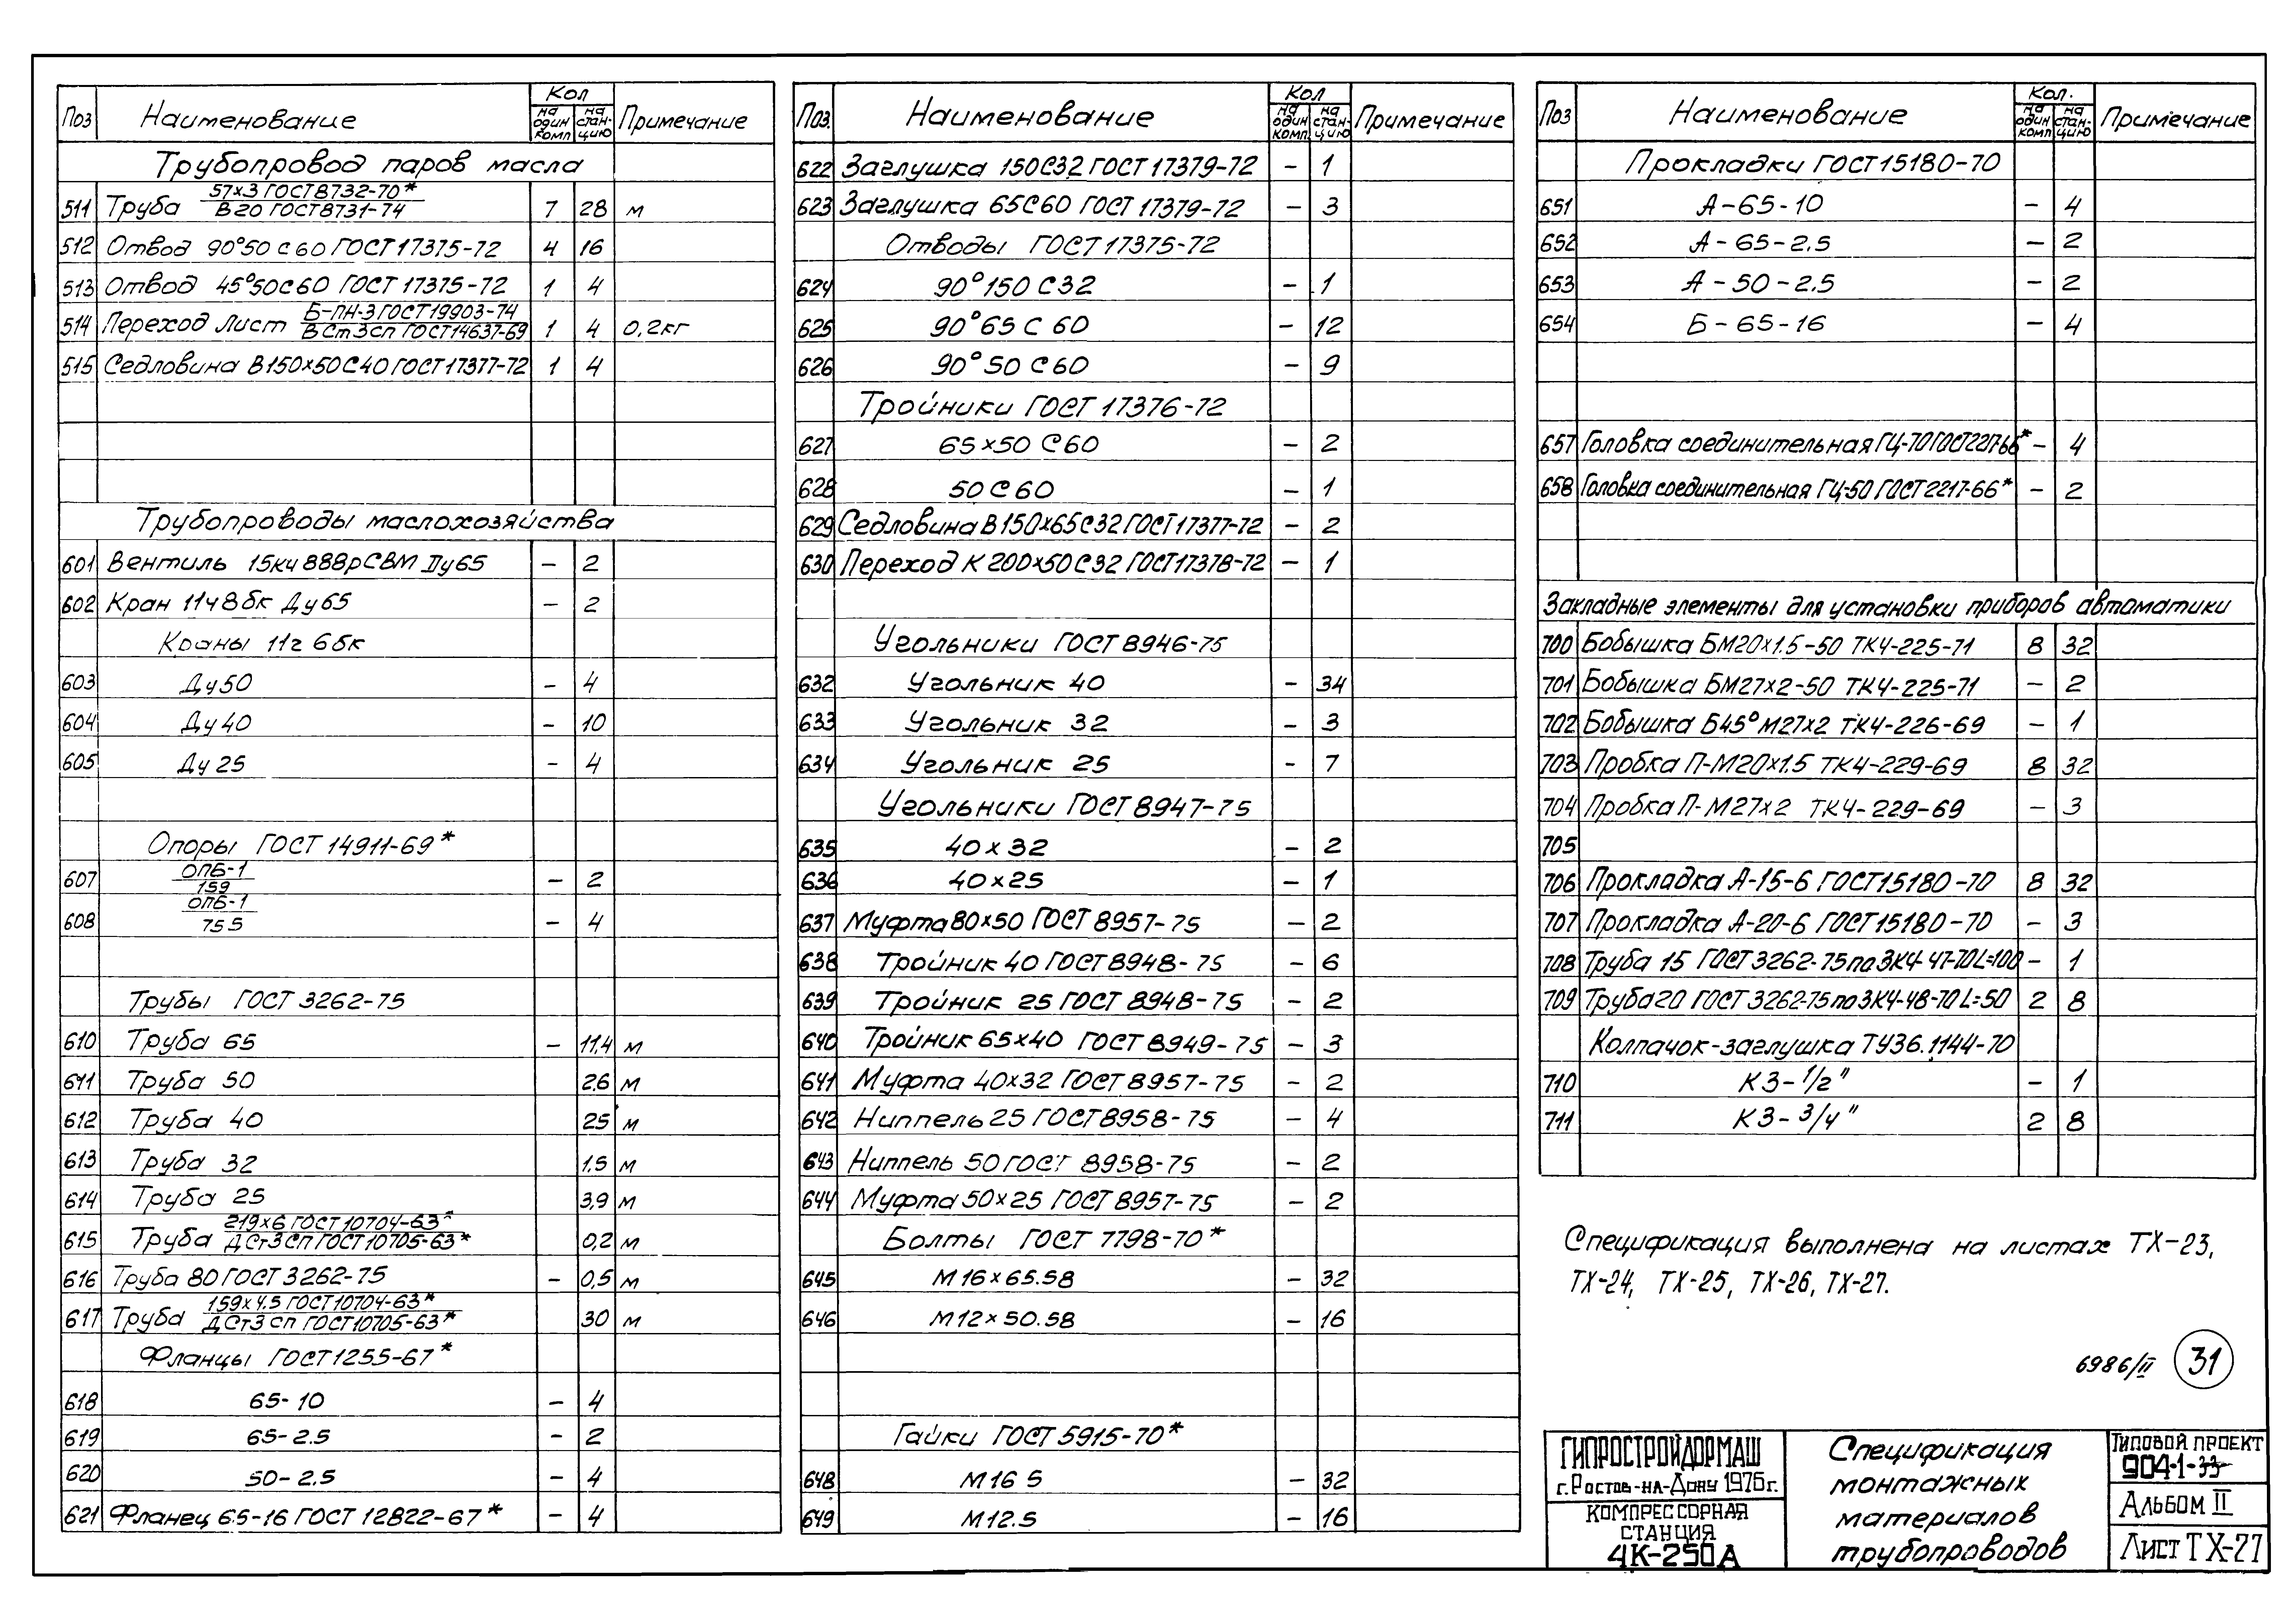 Поз Наименование Кол на один комп на станцию Примечание
Трубопровод паров масла
511 Труба 57х3 ГОСТ8732-70* / В20 ГОСТ8731-74 7 28 м
512 Отвод 90°50 С60 ГОСТ17375-72 4 16
513 Отвод 45°50С60 ГОСТ 17375-72 1 4
514 Переход Лист Б-ПН-3 ГОСТ19903-74 / ВСт3сп ГОСТ14637-69 1 4 0,2кг
515 Седловина В150х50С40 ГОСТ17377-72 1 4
Трубопроводы маслохозяйства
601 Вентиль 15кч888рСВМ Ду65 – 2
602 Кран 11ч8бк Ду65 – 2
Краны 11г6бк
603 Ду50 – 4
604 Ду40 – 10
605 Ду25 – 4
Опоры ГОСТ 14911-69*
607 ОПБ-1 / 159 – 2
608 ОПБ-1 / 75.5 – 4
Трубы ГОСТ 3262-75
610 Труба 65 – 11,4 м
611 Труба 50 2.6 м
612 Труба 40 25 м
613 Труба 32 1,5 м
614 Труба 25 3,9 м
615 Труба 219х6 ГОСТ10704-63* / ДСт3сп ГОСТ10705-63* 0,2 м
616 Труба 80 ГОСТ3262-75 – 0,5 м
617 Труба 159х4.5 ГОСТ10704-63* / ДСт3сп ГОСТ10705-63* 30 м
Фланцы ГОСТ1255-67*
618 65-10 – 4
619 65-2.5 – 2
620 50-2.5 – 4
621 Фланец 65-16 ГОСТ 12822-67* – 4
Поз. Наименование Кол на один комп. на станцию Примечание
622 Заглушка 150С32 ГОСТ 17379-72 – 1
623 Заглушка 65С60 ГОСТ 17379-72 – 3
Отводы ГОСТ17375-72
624 90°150 С32 – 1
625 90°65 С 60 – 12
626 90°50 С60 – 9
Тройники ГОСТ 17376-72
627 65х50 С60 – 2
628 50 С60 – 1
629 Седловина В150х65С32 ГОСТ17377-72 – 2
630 Переход К 200х50С32 ГОСТ17378-72 – 1
Угольники ГОСТ8946-75
632 Угольник 40 – 34
633 Угольник 32 – 3
634 Угольник 25 – 7
Угольники ГОСТ8947-75
635 40х32 – 2
636 40х25 – 1
637 Муфта80х50 ГОСТ 8957-75 – 2
638 Тройник 40 ГОСТ8948-75 – 6
639 Тройник 25 ГОСТ 8948-75 – 2
640 Тройник 65х40 ГОСТ 8949-75 – 3
641 Муфта 40х32 ГОСТ8957-75 – 2
642 Ниппель 25 ГОСТ8958-75 – 4
643 Ниппель 50 ГОСТ 8958-75 – 2
644 Муфта 50х25 ГОСТ8957-75 – 2
Болты ГОСТ 7798-70*
645 М16х65.58 – 32
646 М12х50.58 – 16
Гайки ГОСТ 5915-70*
648 М16 5 – 32
649 М12.5 – 16
Поз Наименование Кол. на один комп на станцию Примечание
Прокладки ГОСТ15180-70
651 А-65-10 – 4
652 А-65-2.5 – 2
653 А-50-2.5 – 2
654 Б-65-16 – 4
657 Головка соединительная ГЦ-70 ГОСТ2217-66* – 4
658 Головка соединительная ГЦ-50 ГОСТ2217-66* – 2
Закладные элементы для установки приборов автоматики
700 Бобышка БМ20х1.5-50 ТК4-225-71 8 32
701 Бобышка БМ27х2-50 ТК4-225-71 – 2
702 Бобышка Б45°М27х2 ТК4-226-69 – 1
703 Пробка П-М20х1.5 ТК4-229-69 8 32
704 Пробка П-М27х2 ТК4-229-69 – 3
705
706 Прокладка А-15-6 ГОСТ15180-70 8 32
707 Прокладка А-20-6 ГОСТ15180-70 – 3
708 Труба 15 ГОСТ3262-75 по ЗК4-47-70 L=100 – 1
709 Труба20 ГОСТ3262-75 по ЗК4-48-70 L=50 2 8
Колпачок-заглушка ТУ36.1144-70
710 КЗ-1/2" – 1
711 КЗ-3/4" 2 8
Спецификация выполнена на листах ТХ-23,
ТХ-24, ТХ-25, ТХ-26, ТХ-27.
6986/II 31
ГИПРОСТРОЙДОРМАШ
г.Ростов-на-Дону 1976г.
КОМПРЕССОРНАЯ
СТАНЦИЯ
4К-250А
Спецификация
монтажных
материалов
трубопроводов
Типовой проект
904-1-33
Альбом II
Лист ТХ-27